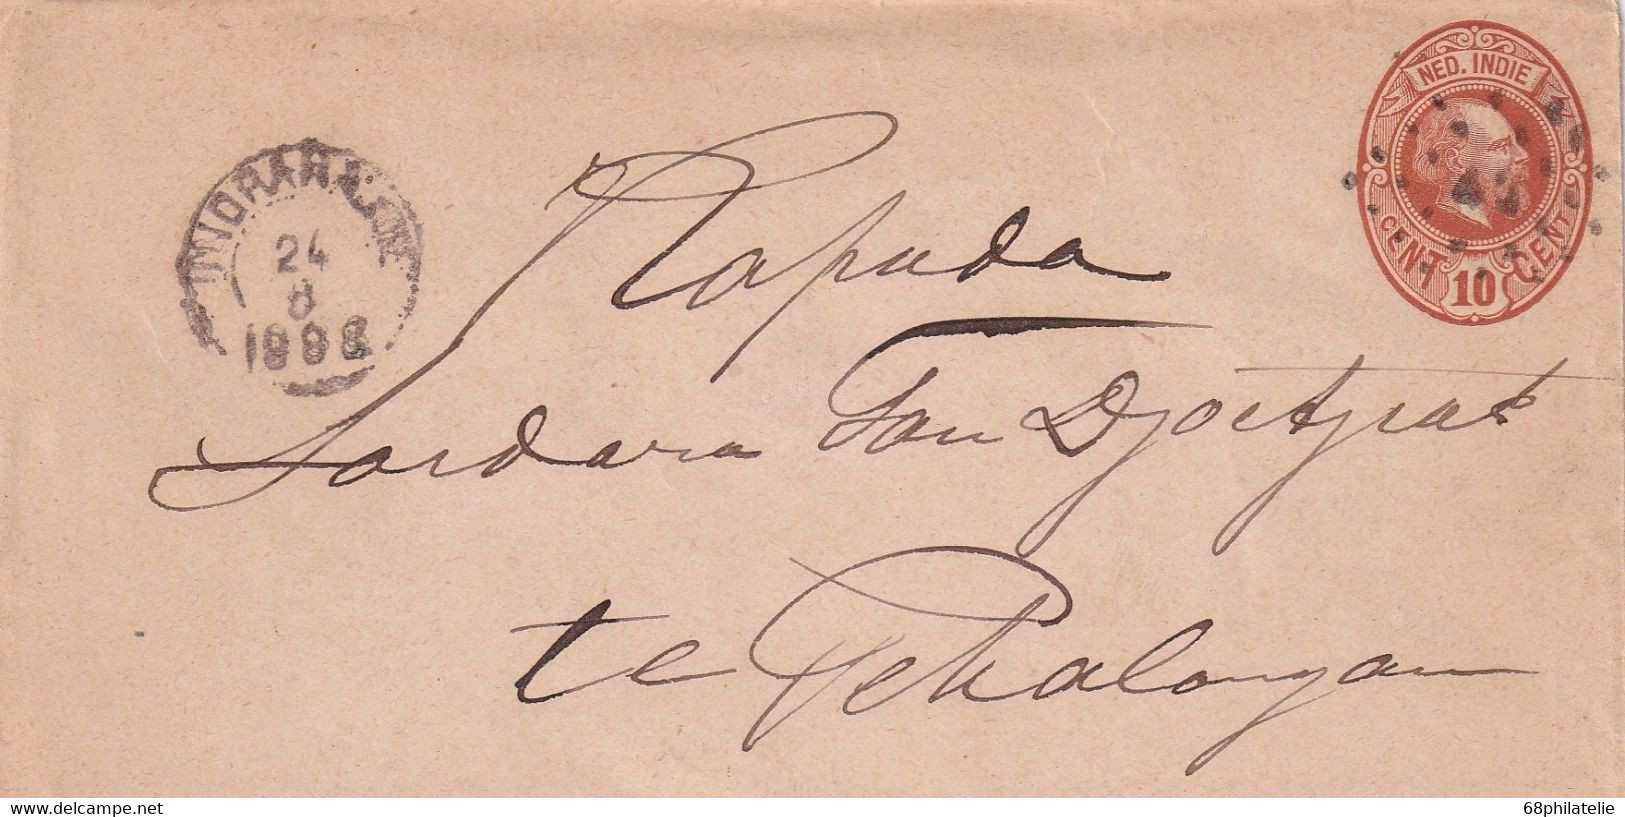 NED. INDIE
CENT 10 CENT
24
8
1888
Kapada
Sordara Tan Djoe
te Pekalongan
www.delcampe.net
68philatelie